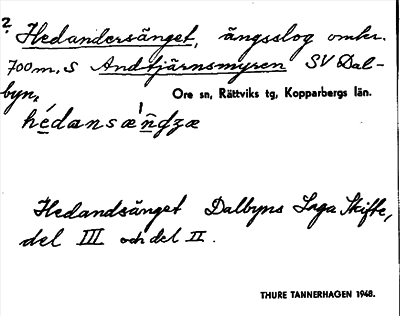 ?
Hedandersänget, ängsslog omkr.
700 m. S Andtjärnsmyren SV Dal-
byn.
Ore sn, Rättviks tg, Kopparbergs län.
hédansæ̀ñdʒæ
Hedandsänget Dalbyns Laga Skifte,
del III och del II.
THURE TANNERHAGEN 1948.